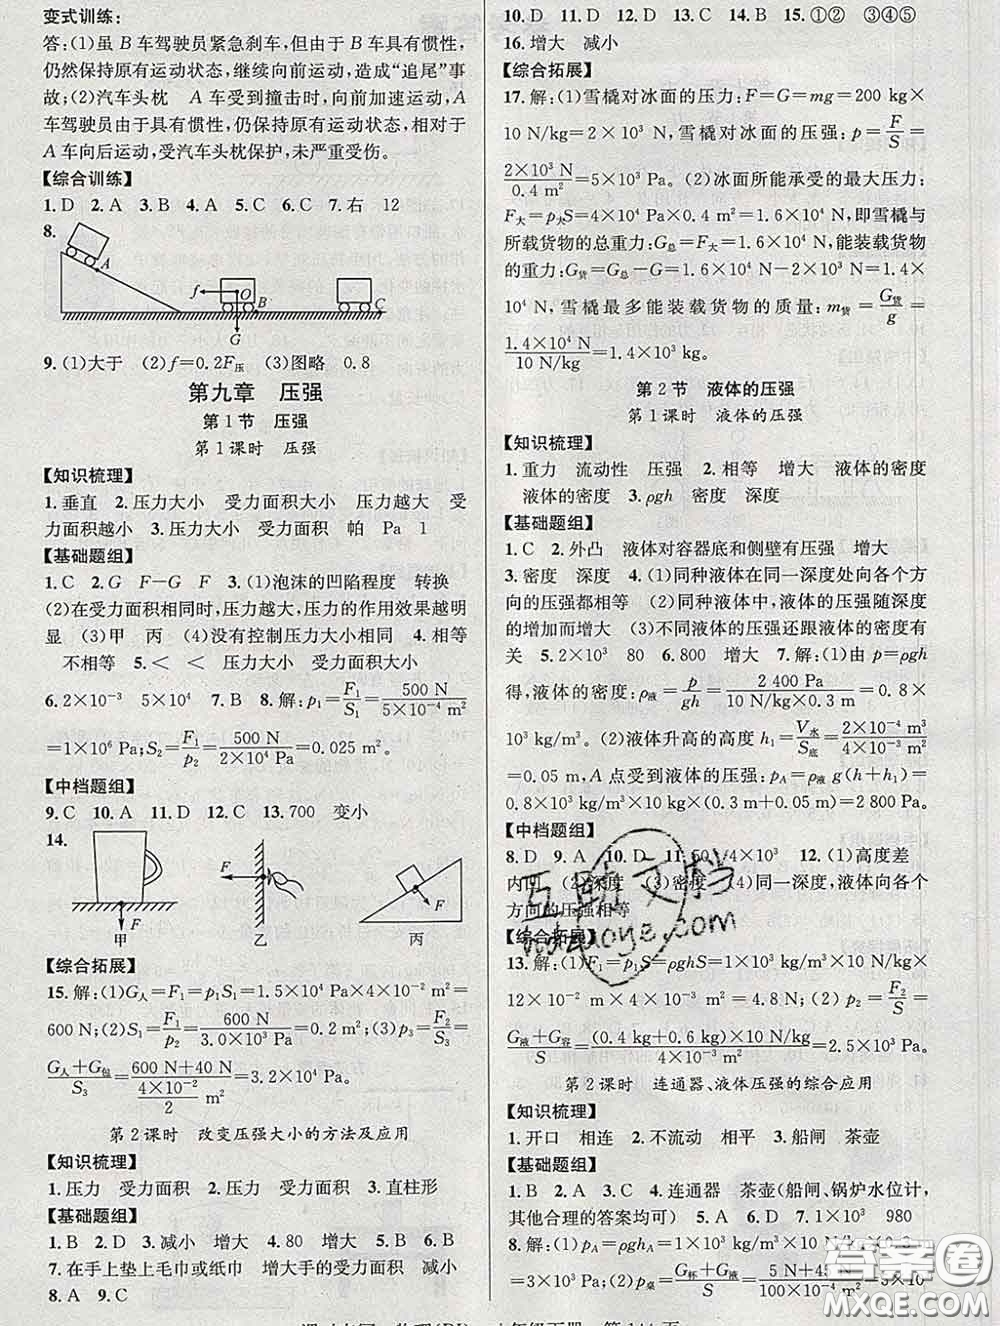 变式训练:
答:(1)虽 B 车驾驶员紧急刹车,但由于 B 车具有惯性,
仍然保持原有运动状态,继续向前运动,造成“追尾”事
故;(2)汽车头枕 A 车受到撞击时,向前加速运动,A
车驾驶员由于具有惯性,仍保持原有运动状态,相对于
A 车向后运动,受汽车头枕保护,未严重受伤。
【综合训练】
1. D 2. A 3. B 4. A 5. C 6. C 7. 右 12
8.
A f O B C G
9. (1)大于 (2)f=0.2F压 (3)图略 0.8
第九章 压强
第1节 压强
第1课时 压强
【知识梳理】
1. 垂直 2. 压力大小 受力面积大小 压力越大 受
力面积越小 3. 压力大小 受力面积 帕 Pa 1
【基础题组】
1. C 2. G F-G F 3. (1)泡沫的凹陷程度 转换
(2)在受力面积相同时,压力越大,压力的作用效果越明
显 (3)甲 丙 (4)没有控制压力大小相同 4. 相等
不相等 5. < < 压力大小 受力面积大小
6. 2×10⁻³ 5×10⁴ 7. B 8. 解:p₁=F₁/S₁=500 N/(5×10⁻⁴ m²)
=1×10⁶ Pa;S₂=F₁/p₂=500 N/(2×10⁴ Pa)=0.025 m²。
【中档题组】
9. C 10. A 11. D 12. C 13. 700 变小
14.
F 甲 F 乙 F 丙
【综合拓展】
15. 解:(1)G人=F₁=p₁S₁=1.5×10⁴ Pa×4×10⁻² m²=
600 N;(2)S₂=F₁/p₂=600 N/(3.0×10³ Pa)=0.2 m²;(3)p₃=F₂/S₃=
(G人+G包)/S₃=(600 N+40 N)/(4×10⁻²/2 m²)=3.2×10⁴ Pa。
第2课时 改变压强大小的方法及应用
【知识梳理】
1. 压力 受力面积 2. 压力 受力面积 3. 直柱形
【基础题组】
1. D 2. D 3. 减小 增大 4. 80 增大 5. B 6. B
7. 在手上垫上毛巾或纸巾 增大手的受力面积 减小
8. A 9. C
10. D 11. D 12. C 13. C 14. B 15. ①② ③④⑤
16. 增大 减小
【综合拓展】
17. 解:(1)雪橇对冰面的压力:F=G=mg=200 kg×
10 N/kg=2×10³ N;雪橇对冰面的压强:p=F/S=
(2×10³ N)/(0.4 m²)=5×10³ Pa。(2)冰面所能承受的最大压力:
F大=p大S=4×10⁴ Pa×0.4 m²=1.6×10⁴ N,即雪橇与
所载货物的总重力:G总=F大=1.6×10⁴ N,能装载货物
的重力:G货=G总-G=1.6×10⁴ N-2×10³ N=1.4×
10⁴ N,雪橇最多能装载货物的质量:m货=G货/g=
(1.4×10⁴ N)/(10 N/kg)=1.4×10³ kg。
第2节 液体的压强
第1课时 液体的压强
【知识梳理】
1. 重力 流动性 压强 2. 相等 增大 液体的密度
液体的密度 3. ρgh 密度 深度
【基础题组】
1. C 2. 外凸 液体对容器底和侧壁有压强 增大
3. 密度 深度 4. (1)同种液体在同一深度处向各个方
向的压强都相等 (2)同种液体中,液体的压强随深度
的增加而增大 (3)不同液体的压强还跟液体的密度有
关 5. 2×10³ 80 6. 800 增大 7. 解:(1)由 p=ρgh
得,液体的密度:ρ液=p/gh=2 400 Pa/(10 N/kg×0.3 m)=0.8×
10³ kg/m³。(2)液体升高的高度 h₁=V水/S底=(2×10⁻⁴ m³)/(4×10⁻³ m²)
=0.05 m,A 点受到液体的压强:pA=ρ液 g(h+h₁)=
0.8×10³ kg/m³×10 N/kg×(0.3 m+0.05 m)=2 800 Pa。
【中档题组】
8. D 9. A 10. D 11. 50 4×10³ 12. (1)高度差
内凹 (2)深度 (3)密度 (4)同一深度,液体向各个
方向的压强相等
【综合拓展】
13. 解:(1)F₁=p₁S=ρghS=1×10³ kg/m³×10 N/kg×
12×10⁻² m×4×10⁻³ m²=4.8 N;(2)p₂=F₂/S=
(G液+G容)/S=((0.4 kg+0.6 kg)×10 N/kg)/(4×10⁻³ m²)=2.5×10³ Pa。
第2课时 连通器、液体压强的综合应用
【知识梳理】
1. 开口 相连 2. 不流动 相平 3. 船闸 茶壶
【基础题组】
1. B 2. A 3. C 4. 连通器 茶壶(船闸、锅炉水位计,
其他合理的答案均可) 5. A 6. D 7. 1×10³ 980
8. 解:(1)pA=ρghA=1×10³ kg/m³×10 N/kg×0.3
m=3×10³ Pa;(2)p桌=(G杯+G液)/S=(5 N+45 N)/(100×10⁻⁴ m²)
互助文档
hdzuoye.com
答案圈
MXQE.COM